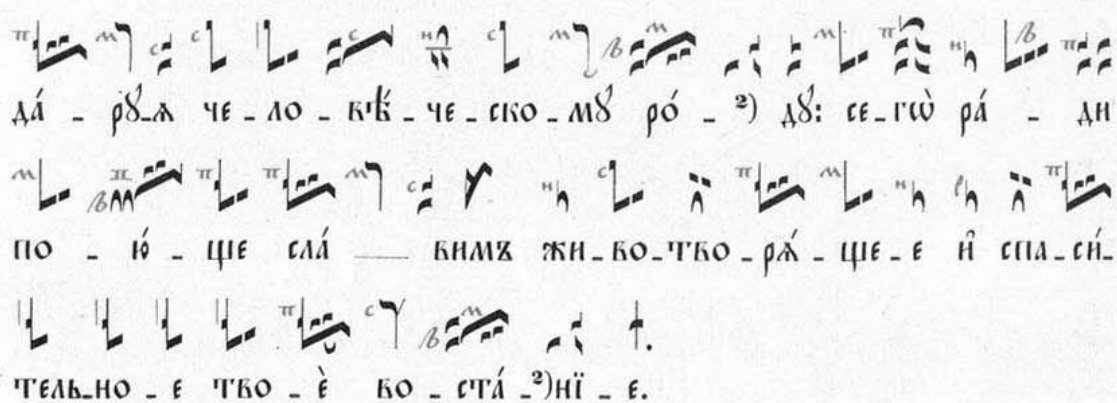 да́ - рꙋ-ѧ че - ло - вѣ́ - че - ско - мꙋ ро́ - ²) дꙋ: се - гѡ̀ ра́ - ди
по - ю́ - ще сла́ вимъ жи - во - тво - рѧ́ - ще - е и҆ спа - си́ -
тель - но - е тво - ѐ во - ста́ - ²)нї - е.